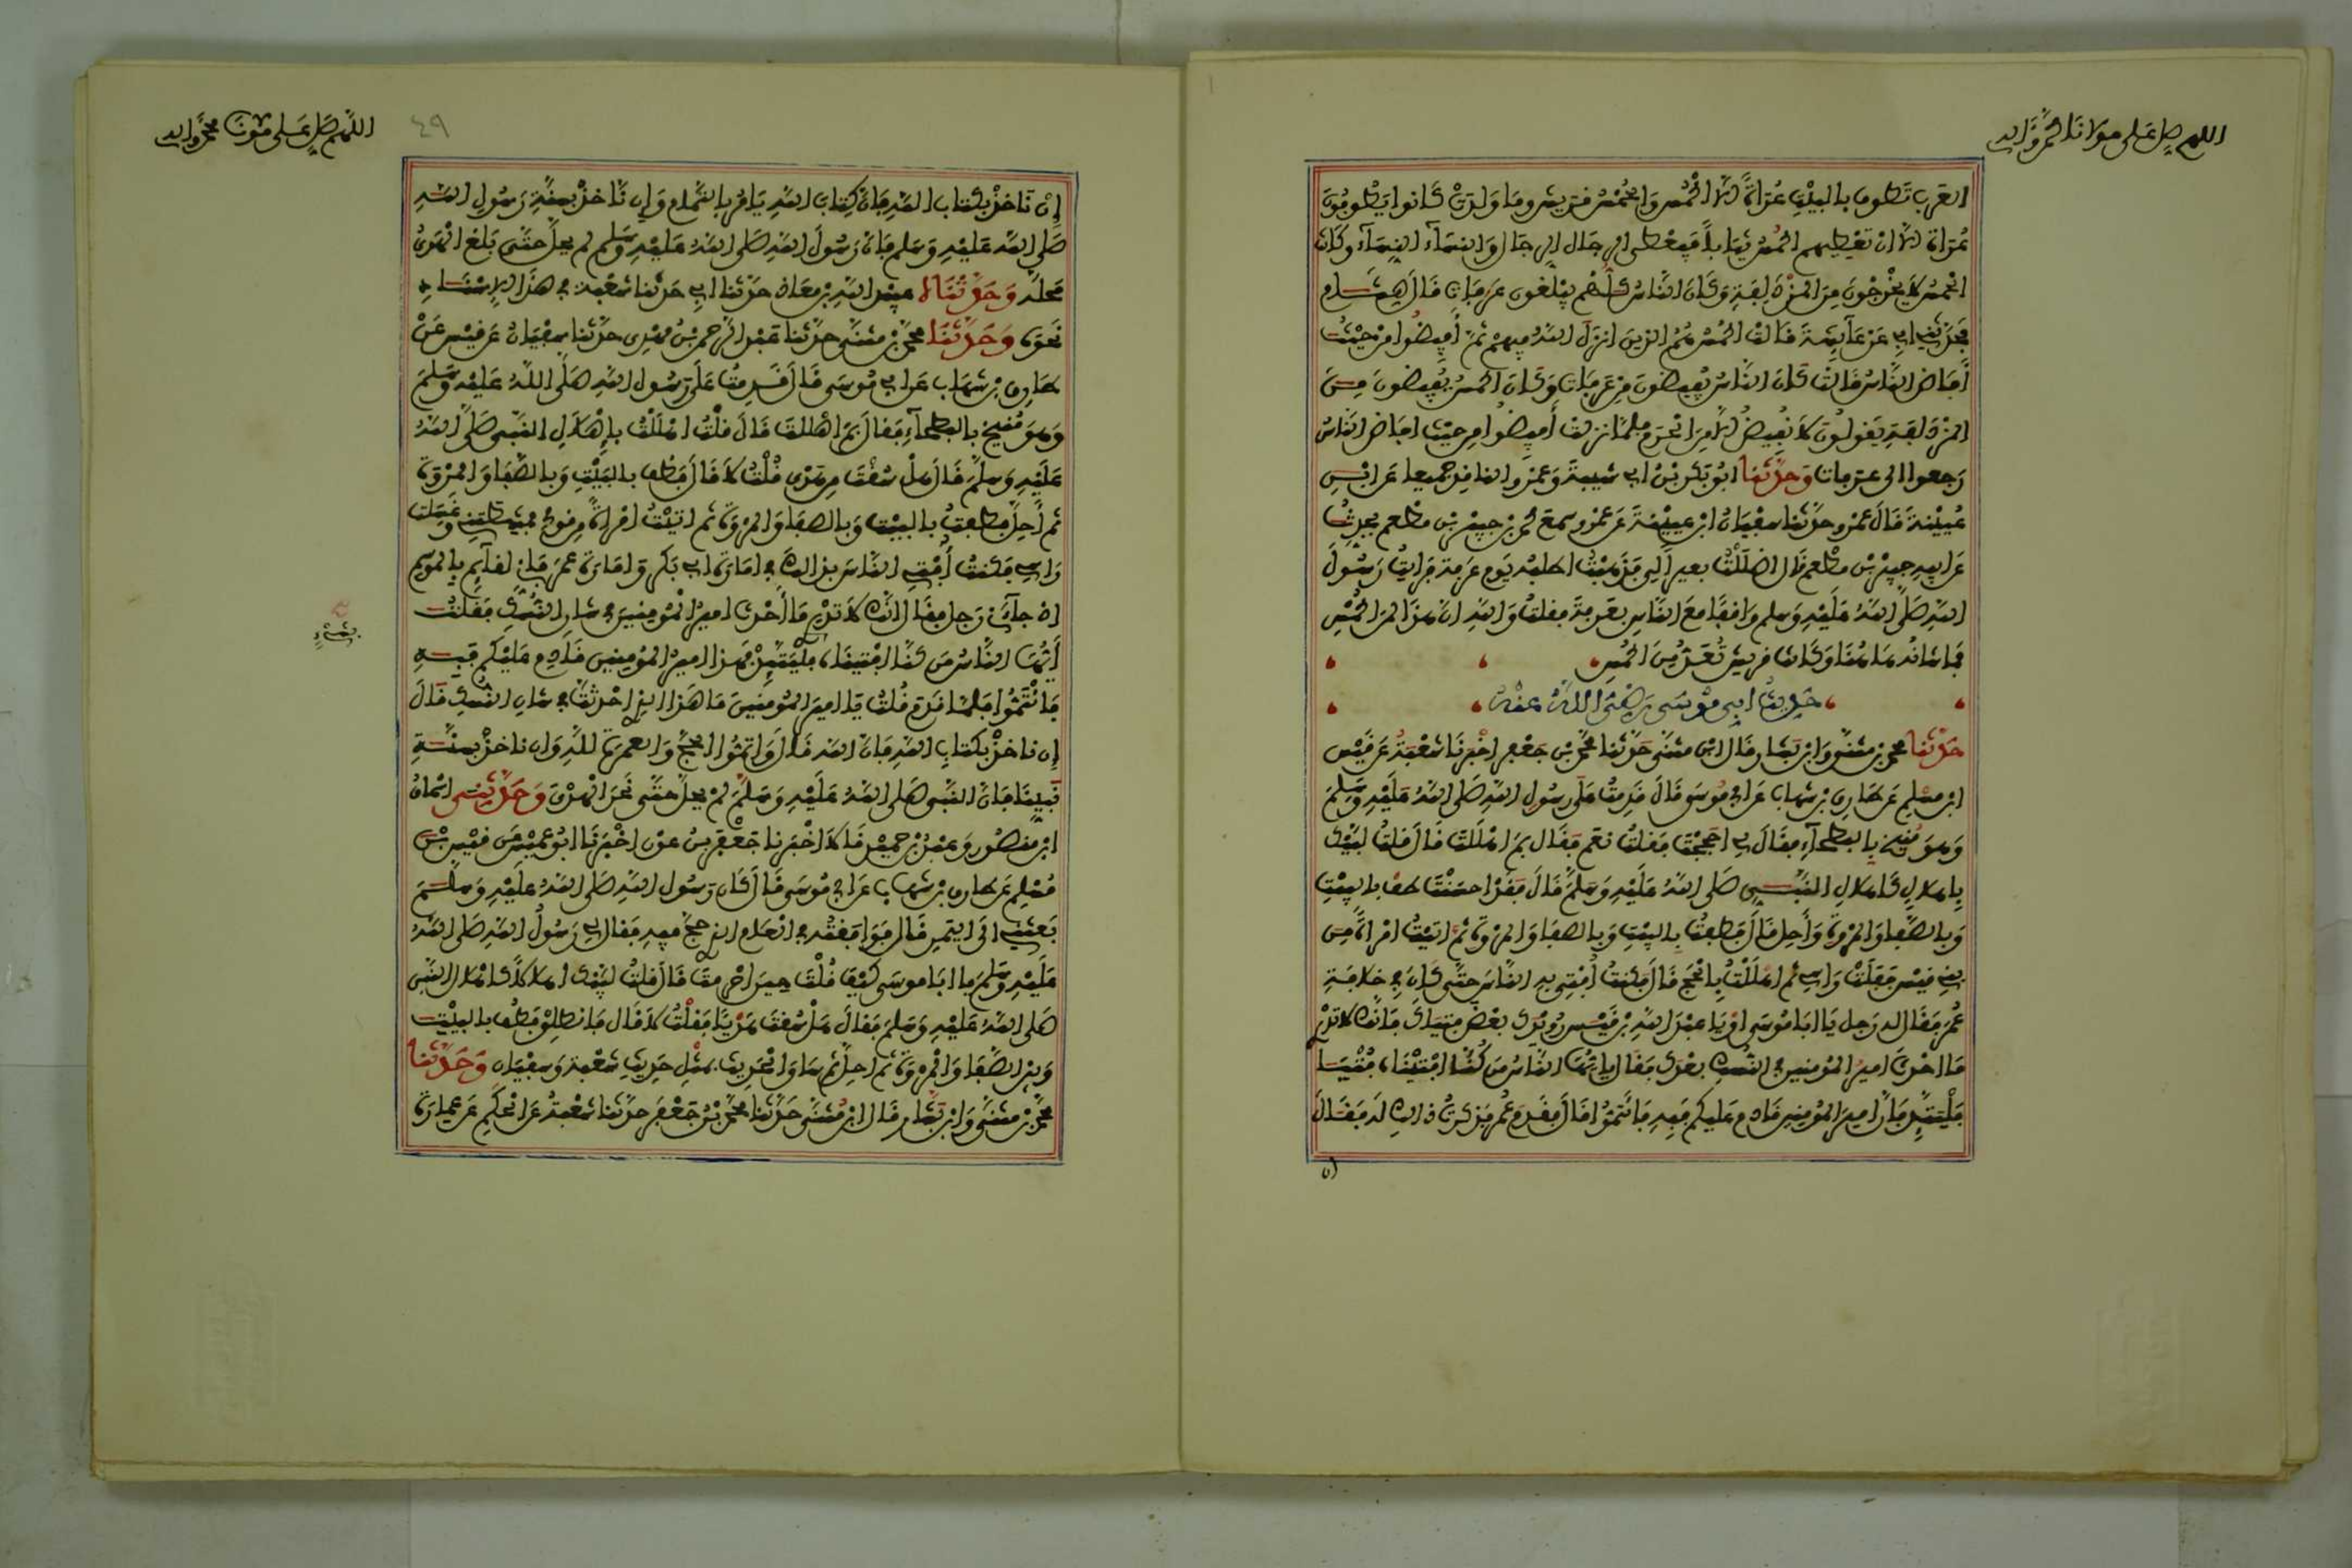 اللهم صل على مولانا محمد وآله
العرب تطوف بالبيت عراة الا الحمس والحمس قريش وما ولدت كانوا يطوفون
عراة الا ان تعطيهم الحمس ثيابا فيعطي الرجال الرجال والنساء النساء وكانت
الحمس لا يخرجون من المزدلفة وكان الناس كلهم يبلغون عرفات قال هشام
فحدثني ابي عن عائشة قالت الحمس هم الذين انزل الله فيهم ثم أفيضوا من حيث
أفاض الناس قالت كان الناس يفيضون من عرفات وكان الحمس يفيضون من
المزدلفة يقولون لا نفيض الا من الحرم فلما نزلت أفيضوا من حيث افاض الناس
رجعوا الى عرفات وحدثنا ابو بكر بن ابي شيبة وعمرو الناقد جميعا عن ابن
عيينة قال عمرو حدثنا سفيان ابن عيينة عن عمرو سمع محمد بن جبير بن مطعم يحدث
عن ابيه جبير بن مطعم قال اضللت بعيرا لي فذهبت اطلبه يوم عرفة فرأيت رسول
الله صلى الله عليه وسلم واقفا مع الناس بعرفة فقلت والله ان هذا لمن الحمس
فما شانه هاهنا وكانت قريش تعد من الحمس
حديث ابي موسى رضي الله عنه
حدثنا محمد بن مثنى وابن بشار قال ابن مثنى حدثنا محمد بن جعفر اخبرنا شعبة عن قيس
ابن مسلم عن طارق بن شهاب عن ابي موسى قال قدمت على رسول الله صلى الله عليه وسلم
وهو منيخ بالبطحاء فقال لي احججت فقلت نعم فقال بم اهللت قال قلت لبيك
بإهلال كإهلال النبي صلى الله عليه وسلم قال فقد احسنت طف بالبيت
وبالصفا والمروة وأحل قال فطفت بالبيت وبالصفا والمروة ثم اتيت امراة من
بني قيس ففلت راسي ثم اهللت بالحج قال فكنت أفتي به الناس حتى كان في خلافة
عمر فقال له رجل يا ابا موسى او يا عبد الله بن قيس رويدك بعض فتياك فانك لا تدري
ما احدث امير المومنين في النسك بعدك فقال يايها الناس من كنا افتيناه فتيا
فليتئد فان امير المومنين قادم عليكم فبه فائتموا قال فقدم عمر فذكرت ذالك له فقال
ان
اللهم صل على مولانا محمد وآله
٤٩
إن ناخذ بكتاب الله فان كتاب الله يامر بالتمام وإن ناخذ بسنة رسول الله
صلى الله عليه وسلم فان رسول الله صلى الله عليه وسلم لم يحل حتى بلغ الهدي
محله وحدثناه عبيد الله بن معاذ حدثنا ابي حدثنا شعبة في هذا الاسناد
نحوه وحدثنا محمد بن مثنى حدثنا عبد الرحمن بن مهدي حدثنا سفيان عن قيس عن
طارق بن شهاب عن ابي موسى قال قدمت على رسول الله صلى الله عليه وسلم
وهو منيخ بالبطحاء فقال بم اهللت قال قلت اهللت بإهلال النبي صلى الله
عليه وسلم قال هل سقت من هدي قلت لا قال فطف بالبيت وبالصفا والمروة
ثم أحل فطفت بالبيت وبالصفا والمروة ثم اتيت امراة من قومي فمشطتني وغسلت
راسي فكنت أفتي الناس بذالك في امارة ابي بكر وامارة عمر فإني لقائم بالموسم
اذ جاءني رجل فقال انك لا تدري ما أحدث امير المومنين في شان النسك فقلت
أيها الناس من كنا افتيناه بشيء فليتئد فهذا امير المومنين قادم عليكم فبه
فائتموا فلما قدم قلت يا امير المومنين ما هذا الذي احدثت في شان النسك قال
إن ناخذ بكتاب الله فان الله قال وأتموا الحج والعمرة لله وان ناخذ بسنة
نبينا فان النبي صلى الله عليه وسلم لم يحل حتى نحر الهدي وحدثني اسحاق
ابن منصور وعبد بن حميد قالا اخبرنا جعفر بن عون اخبرنا ابو عميس عن قيس بن
مسلم عن طارق بن شهاب عن ابي موسى قال كان رسول الله صلى الله عليه وسلم
بعثني الى اليمن قال فوافقته في العام الذي حج فيه فقال لي رسول الله صلى الله
عليه وسلم يا ابا موسى كيف قلت حين احرمت قال قلت لبيك اهلالا كاهلال النبي
صلى الله عليه وسلم فقال هل سقت هديا فقلت لا قال فانطلق فطف بالبيت
وبين الصفا والمروة ثم احل ثم ساق الحديث بمثل حديث شعبة وسفيان وحدثنا
محمد بن مثنى وابن بشار قال ابن مثنى حدثنا محمد بن جعفر حدثنا شعبة عن الحكم عن عمارة
بشيء